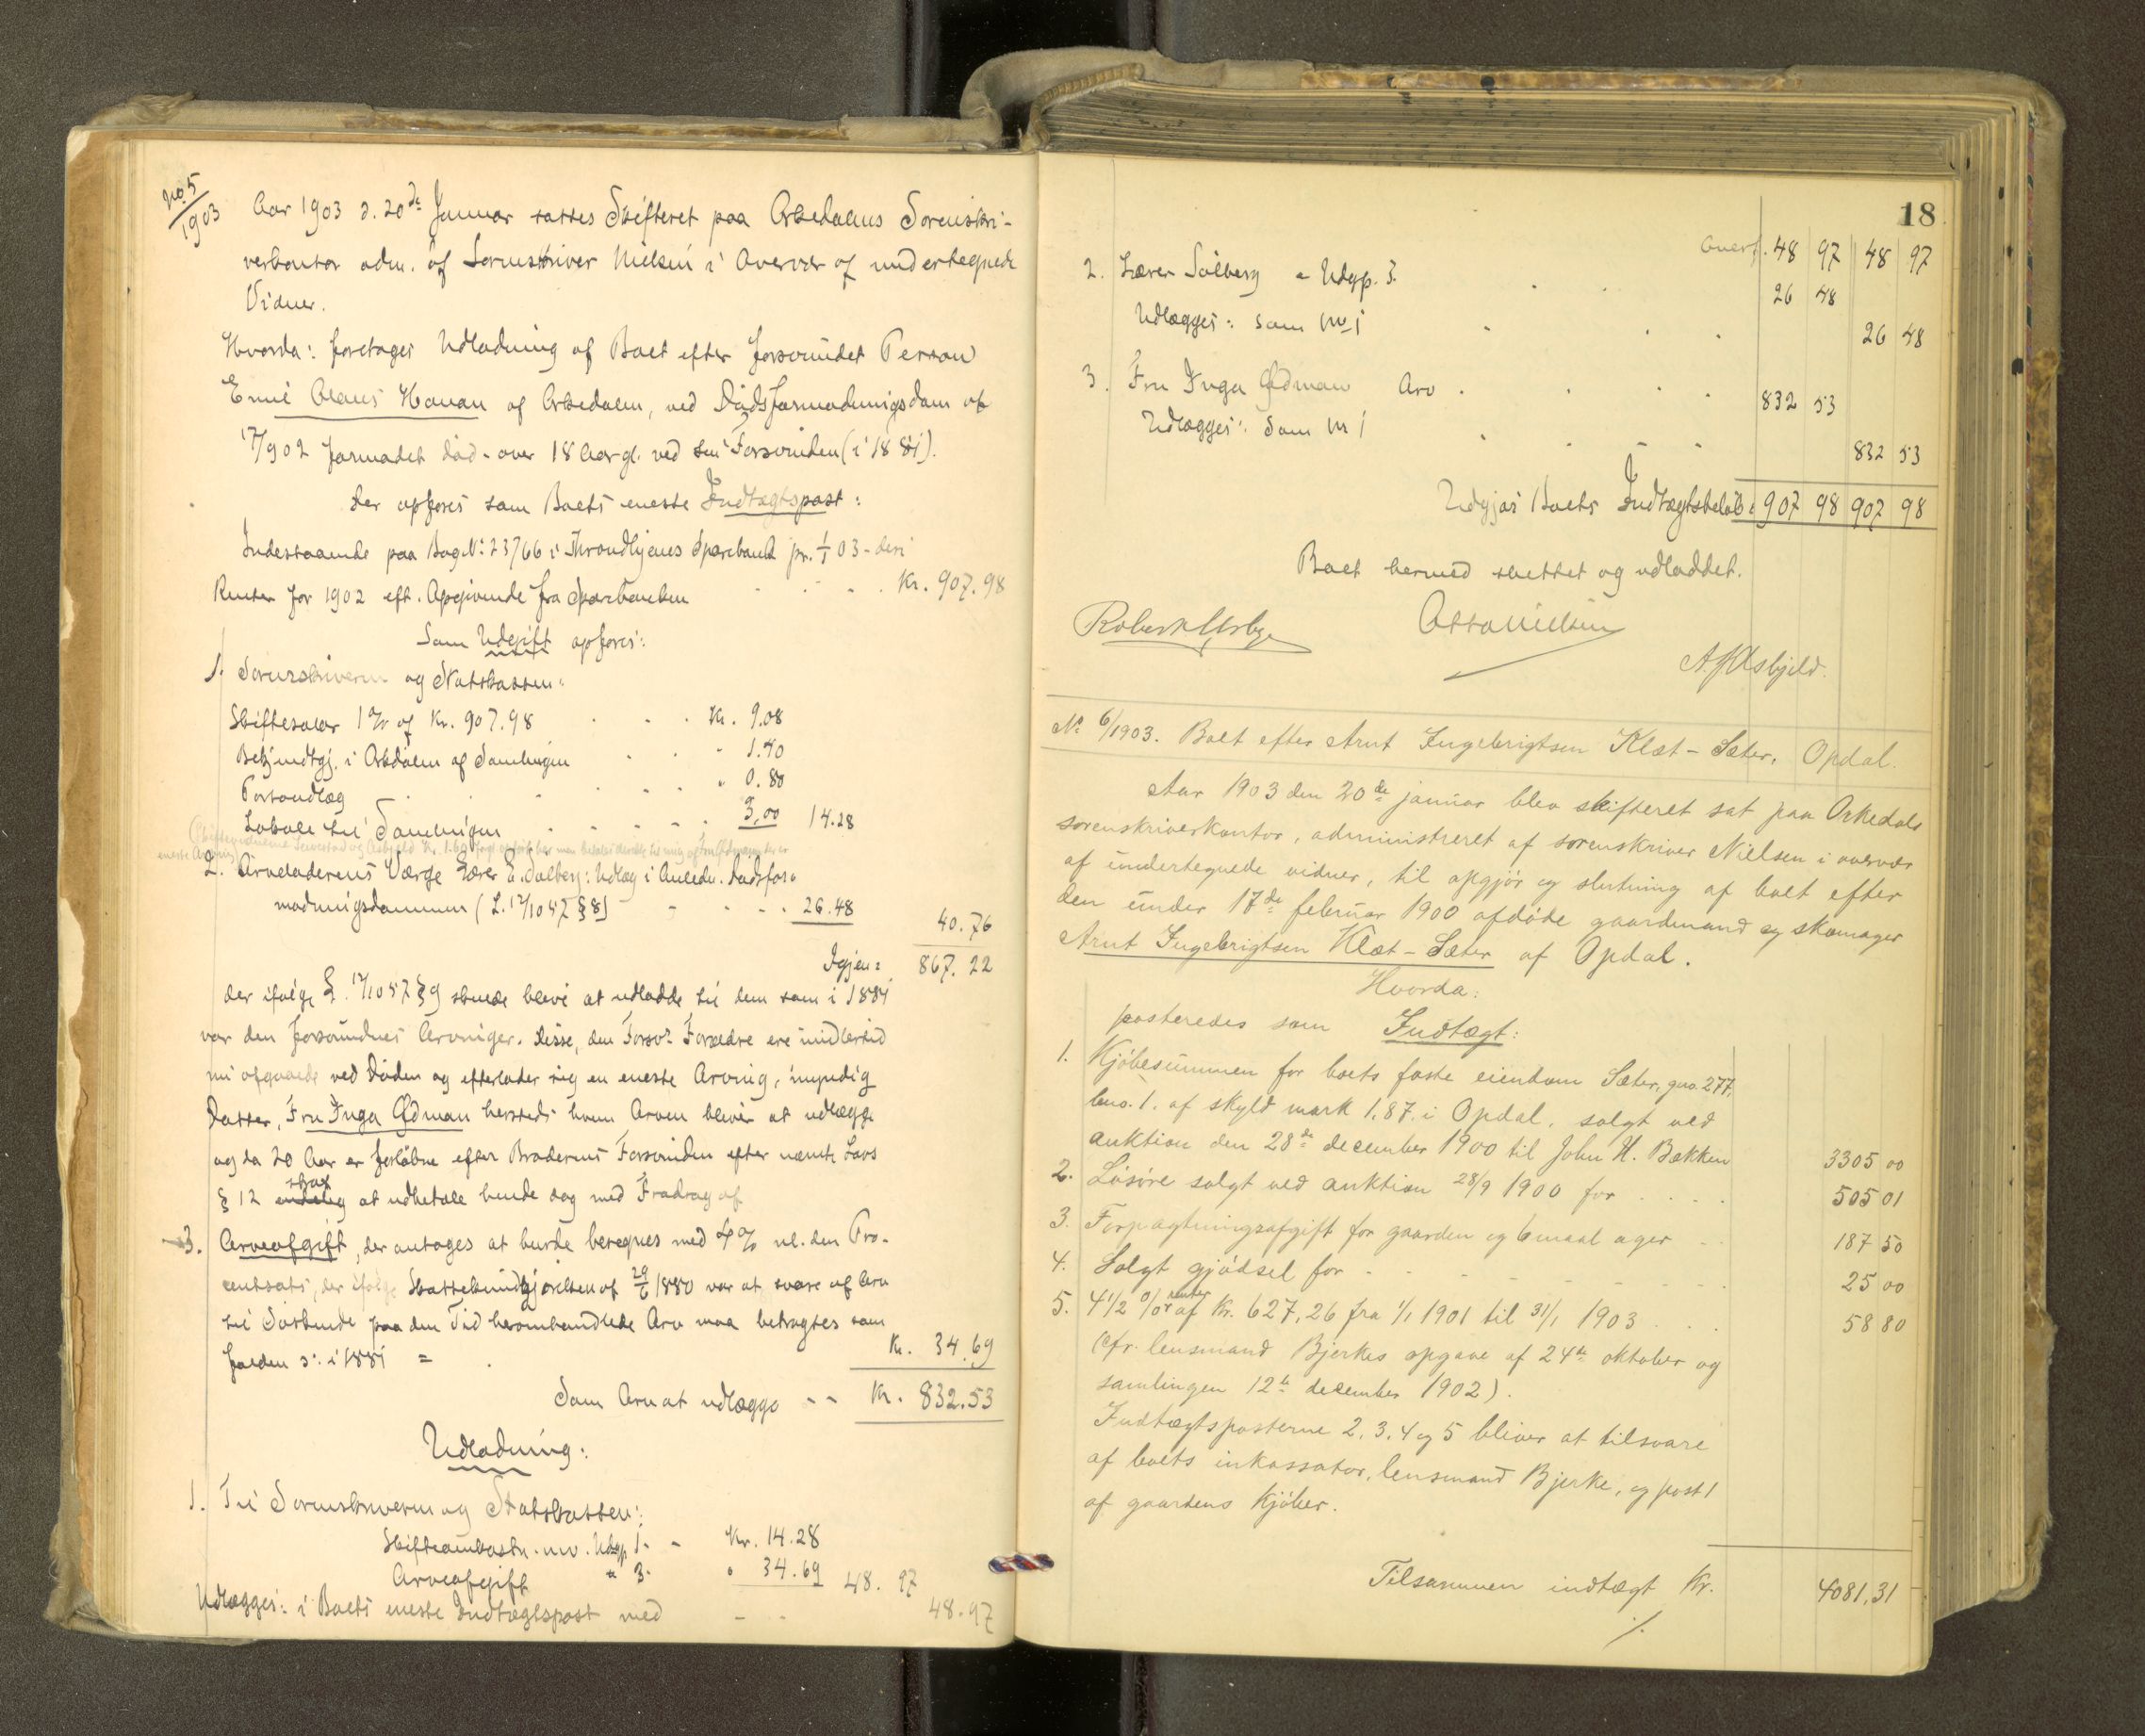 No 5/1903
Aar 1903 d. 20de Januar sattes Skifteret paa Orkedalens Sorenskri-
verkontor adm. af Sorenskriver Nielsen i Overvær af undertegnede
Vidner.
Hvorda: foretages Udlodning af Boet efter forsvundet Person
Emil Olaus Havan af Orkedalen, ved Dødsformodningsdom af
1903 formodet død - over 18 Aar gl. ved sin Forsvinden (i 1881).
Der opføres som Boets eneste Indtægtspost:
Indestaaende paa Bog No: 23766 i Throndhjems Sparebank pr. 1/1 03 - deri
Renter for 1902 eft. Opgivende fra Sparebanken . . . . Kr. 907.98
Som Udgift opføres:
1. Sorenskriveren og Statskassen:
Skiftesalær 1 % af Kr. 907.98 . . . Kr. 9.08
Bekjendtgj. i Orkdalen af Samlingen . . " 1.40
Portoudlæg . . . . " 0.80
Lokale til Samlingen . . . . . 3,00 14.28
2. Arveladerens Værge Lærer E. Solberg: Udlæg i Anledn. Dødsfor-
modningsdommen (L. 12/10 57 § 8) - - - 26.48
40.76
Igjen: 867.22
der ifølge L. 12/10 57 § 9 skulde blive at udlodde til dem som i 1881
var den forsvundnes Arvinger. Disse, den Forsv. Forældre ere imidlertid
nu afgaaede ved Døden og efterlader sig en eneste Arving, myndig
Datter, Fru Inga Ødman hersteds hvem Arven bliver at udlægge
og da 20 Aar er forløbne efter Broderens Forsvinden efter nævnte Lovs
§ 12 strax at udbetale hende dog med Fradrag af
3. Arveafgift, der antages at burde beregnes med 4 % nl. den Pro-
centsats, der ifølge Skattekundgjørelsen af 29/6 1880 var at svare af Arv
til Søskende paa den Tid heromhandlede Arv maa betragtes som
falden ɔ: i 1881 = . Kr. 34.69
Som Arv at udlægge - - Kr. 832.53
Udlodning:
1. Til Sorenskriveren og Statskassen:
Skifteomkostn. nv. Udgp. 1. - Kr. 14.28
Arveafgift " 3. " 34.69 48.97
Udlægges: i Boets eneste Indtægtspost med - - 48.97
18
Overf. 48 97 48 97
2. Lærer Solberg - Udgp. 3. . . 26 48
Udlægges: som No 1 . . . 26 48
3. Fru Inga Ødman Arv . . . . 832 53
Udlægges: som No 1 . . - - 832 53
Udgjør Boets Indtægtsbeløb: 907 98 907 98
Boet hermed sluttet og udloddet.
Otto Nielsen
No 6/1903. Boet efter Arnt Ingebrigtsen Klæt-Sæter, Opdal.
Aar 1903 den 20de januar blev skifteret sat paa Orkedals
sorenskriverkontor, administreret af sorenskriver Nielsen i overvær
af undertegnede vidner, til opgjør og slutning af boet efter
den under 17de februar 1900 afdøde gaardmand og skomager
Arnt Ingebrigtsen Klæt-Sæter af Opdal.
Hvorda:
posteredes som Indtægt:
1. Kjøbesummen for boets faste eiendom Sæter, gno. 277,
bno. 1. af skyld mark 1,87. i Opdal, solgt ved
auktion den 28de december 1900 til John H. Bækken 3305 00
2. Løsøre solgt ved auktion 28/9 1900 for . . . . 505 01
3. Forpagtningsafgift for gaarden og 6 maal ager . . 187 50
4. Solgt gjødsel for - - - - - - 25 00
5. 4 1/2 % renter af Kr. 627,26 fra 1/1 1901 til 31/1 1903 . . . 58 80
(cfr. lensmand Bjerkes opgave af 24de oktober og
samlingen 12te december 1902).
Indtægtsposterne 2, 3, 4 og 5 bliver at tilsvare
af boets inkassator, lensmand Bjerke, og post 1
af gaardens kjøber.
Tilsammen indtægt Kr. 4081,31
./.